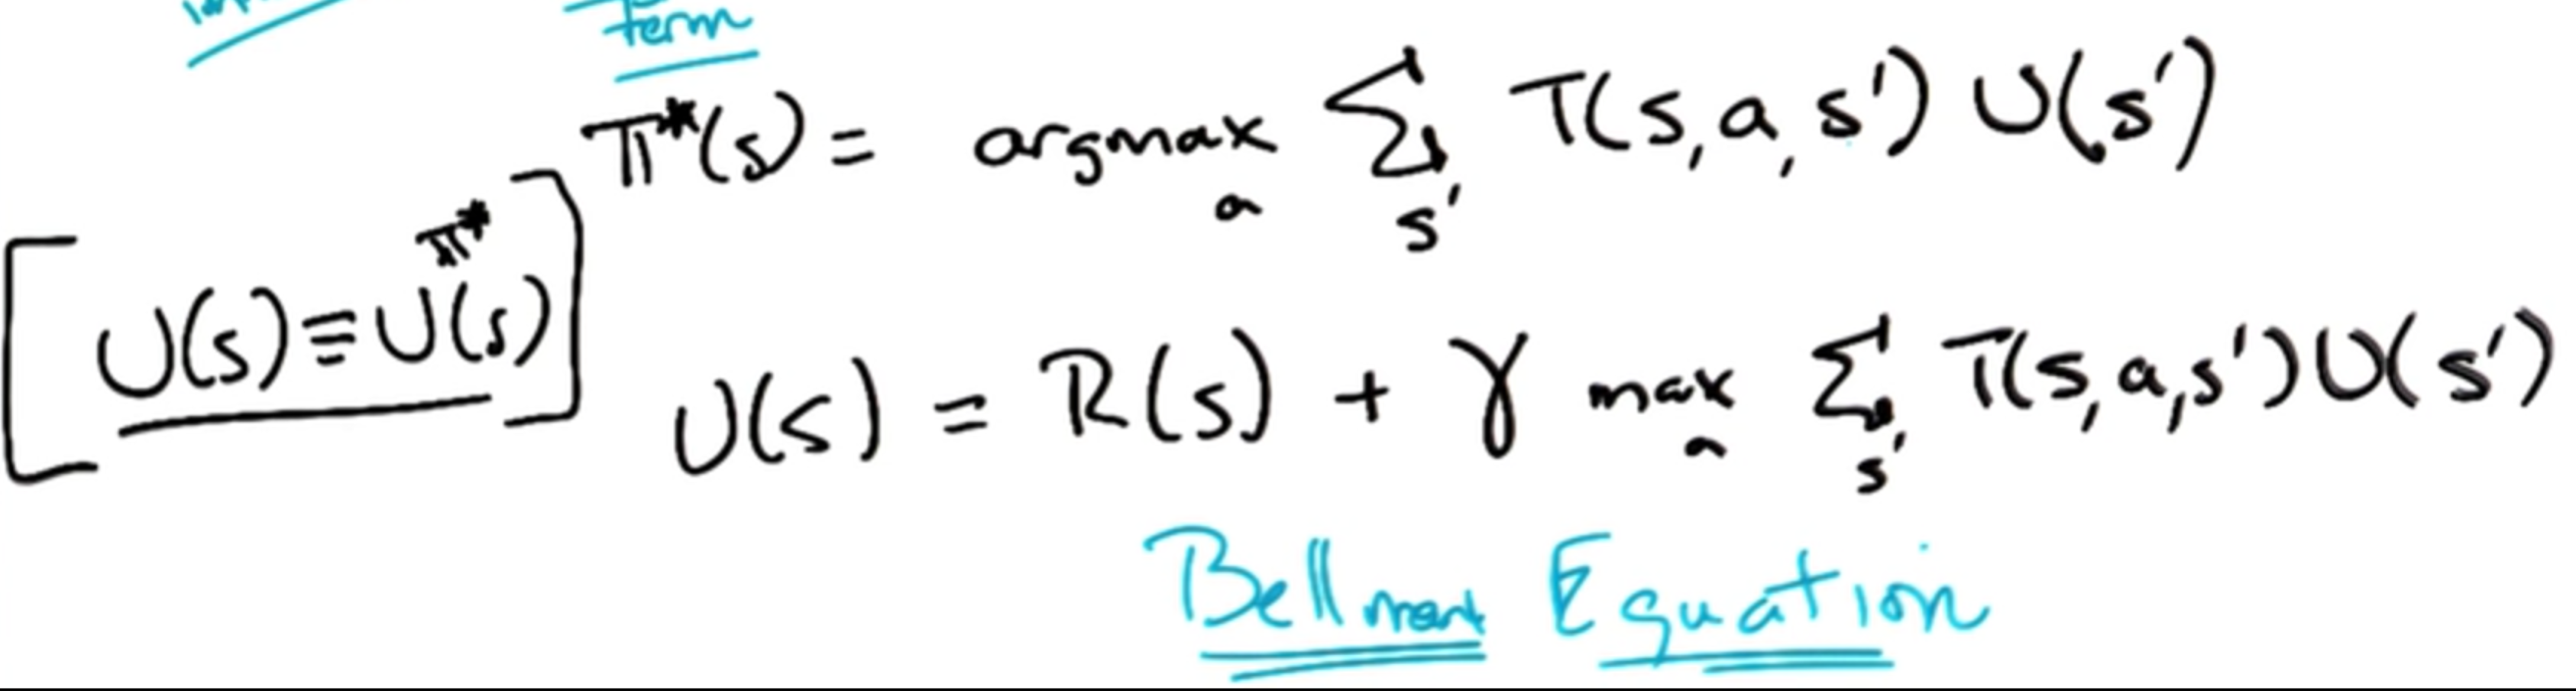 term
π*(s) = argmax_a Σ_s' T(s,a,s') U(s')
[U(s) ≡ U^π*(s)]
U(s) = R(s) + γ max_a Σ_s' T(s,a,s') U(s')
Bellman Equation